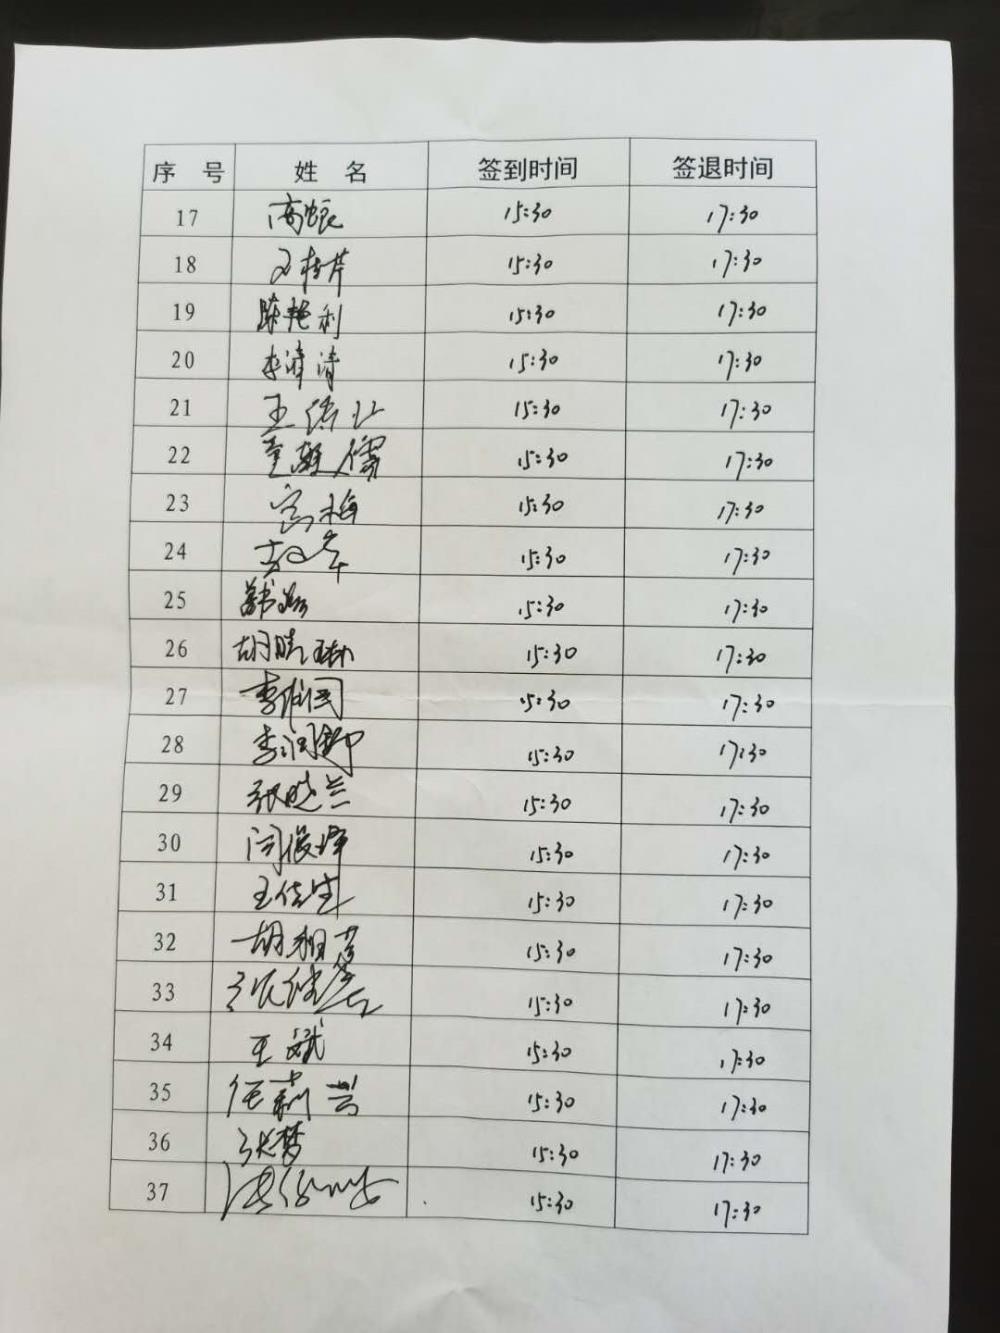 序 号 姓 名 签到时间 签退时间
17 高 15:30 17:30
18 15:30 17:30
19 陈艳利 15:30 17:30
20 李清清 15:30 17:30
21 王 15:30 17:30
22 董 儒 15:30 17:30
23 高梅 15:30 17:30
24 赵军 15:30 17:30
25 15:30 17:30
26 胡晓琳 15:30 17:30
27 李 15:30 17:30
28 李润 15:30 17:30
29 张晓兰 15:30 17:30
30 闫俊峰 15:30 17:30
31 王佳宝 15:30 17:30
32 胡 15:30 17:30
33 张 15:30 17:30
34 王斌 15:30 17:30
35 任莉芸 15:30 17:30
36 张梦 15:30 17:30
37 15:30 17:30